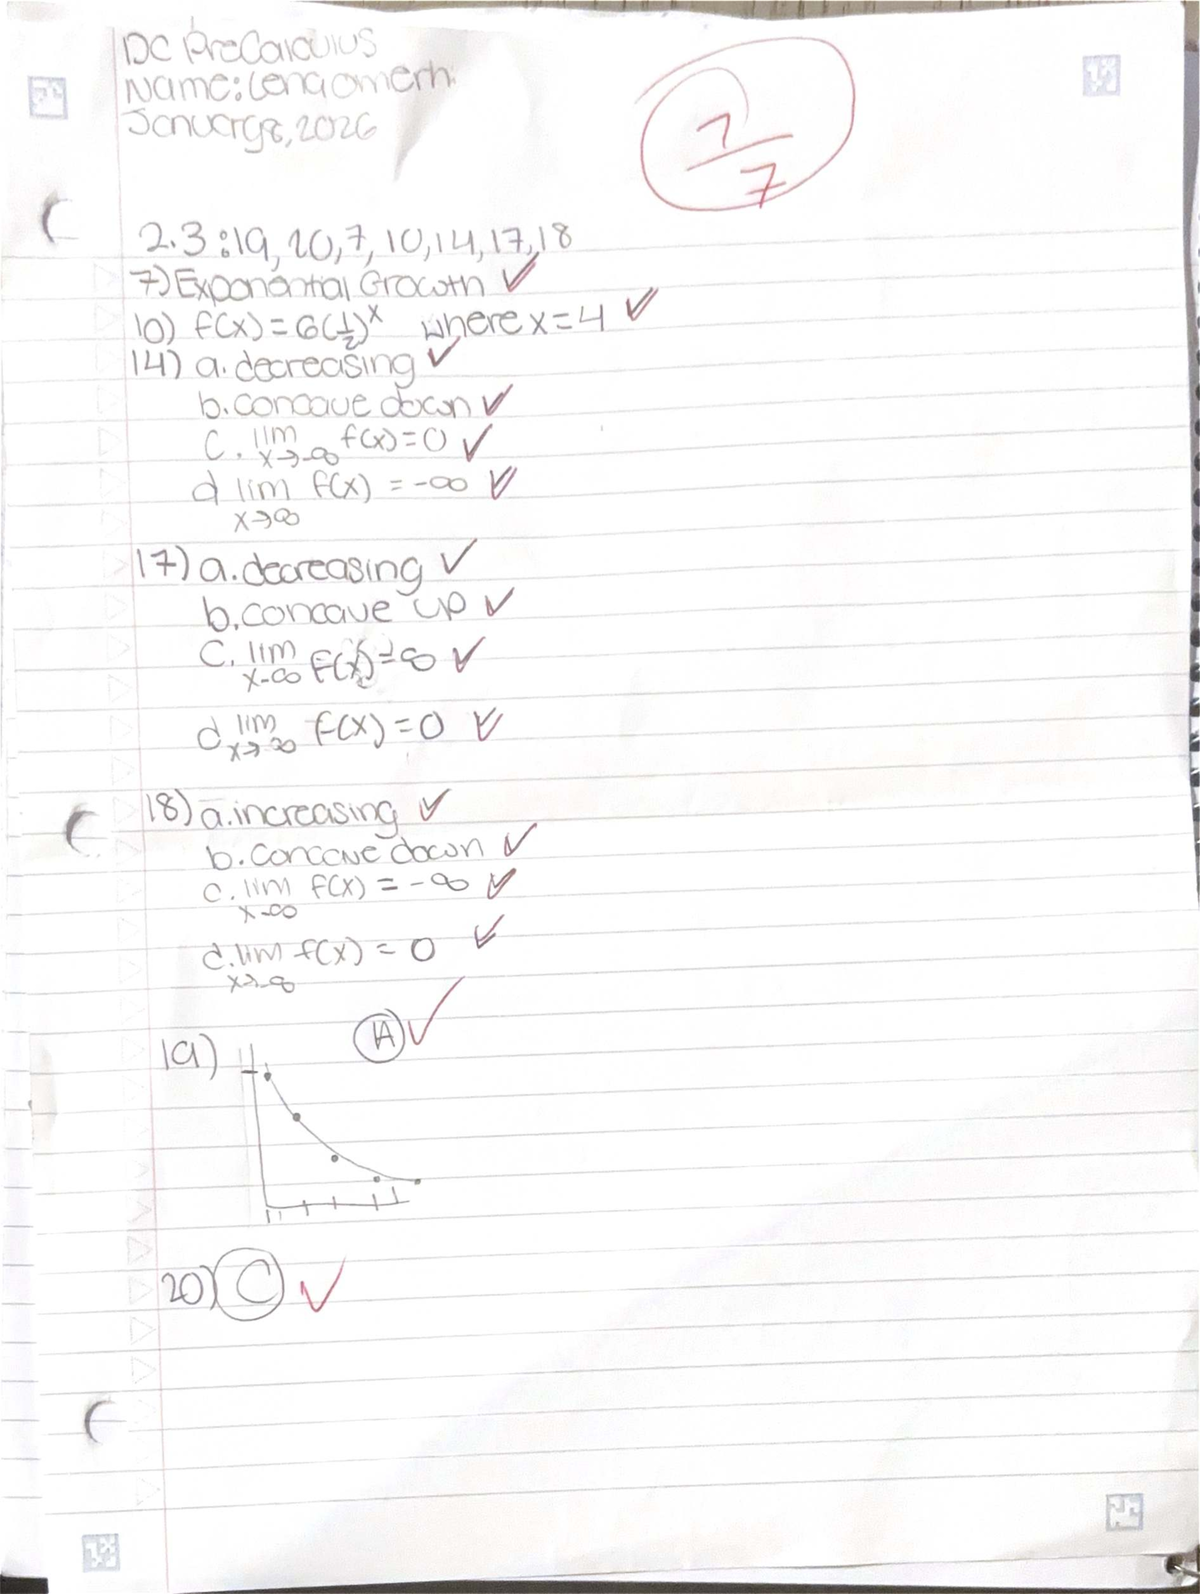 DC PreCalculus
Name: Lena omerh
January 8, 2026
7
7
2.3: 19, 20, 7, 10, 14, 17, 18
7) Exponential Growth ✓
10) f(x) = 6(1/2)^x where x = 4 ✓
14) a. decreasing ✓
b. concave down ✓
c. lim x→-∞ f(x) = 0 ✓
d lim x→∞ f(x) = -∞ ✓
17) a. decreasing ✓
b. concave up ✓
c. lim x-∞ f(x) = ∞ ✓
d lim x→∞ f(x) = 0 ✓
18) a. increasing ✓
b. concave down ✓
c. lim x-∞ f(x) = -∞ ✓
d. lim x→∞ f(x) = 0 ✓
19) A ✓
20) C ✓